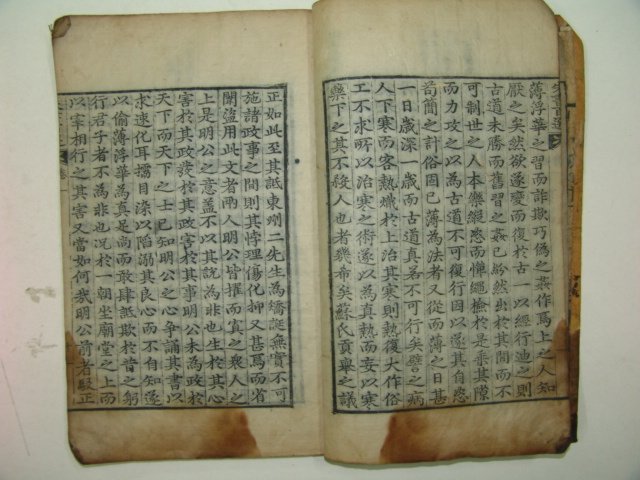 薄浮華之習而詐欺巧偽之姦作焉上之人知
厭之矣然欲遂變而復於古一以經行迪之則
古道未勝而舊習之姦已紛然出於其間而不
可制世之人本樂縱恣而憚繩檢於是乘其隙
而力攻之以為古道不可復行因以遂其自恣
苟簡之計俗固已薄為法者又從而薄之日甚
一日歲深一歲而古道真若不可行矣譬之病
人下寒而客熱熾於上治其寒則熱復大作俗
工不求所以治寒之術遂以為真熱而妄以寒
藥下之其不殺人也者幾希矣蘇氏貢舉之議
正如此至其詆東州二先生為矯誕無實不可
施諸政事之間則其悖理傷化抑又甚焉而省
闈盜用此文者兩人明公皆擢而寘之衆人之
上是明公之意蓋不以其說為非也生於其心
害於其政發於其政害於其事明公未為政於
天下而天下之士已知明公之心爭誦其書以
求速化耳濡目染以陷溺其良心而不自知遂
以偷薄浮華為真足尚而敢肆詆欺於昔之躬
行君子者不為非也況於一朝坐廟堂之上而
以宰相行之其害又當如何哉明公前者駁正